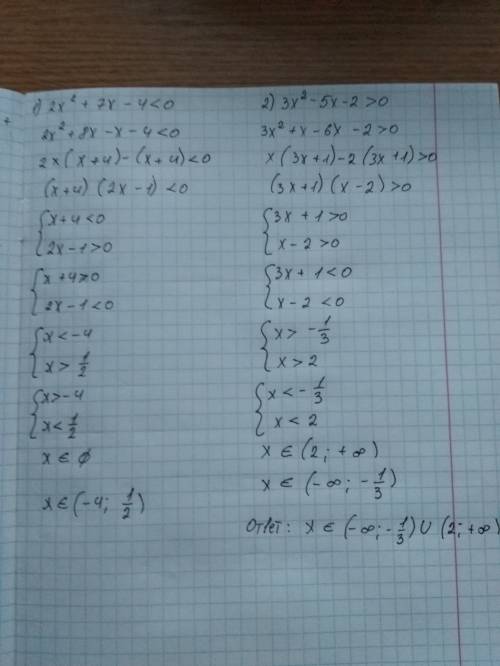 1) 2x² + 7x - 4 < 0
2x² + 8x - x - 4 < 0
2x (x + 4) - (x + 4) < 0
(x + 4) (2x - 1) < 0
{ x + 4 < 0
2x - 1 > 0
{ x + 4 > 0
2x - 1 < 0
{ x < -4
x > 1/2
{ x > -4
x < 1/2
x ∈ ∅
x ∈ (-4; 1/2)
2) 3x² - 5x - 2 > 0
3x² + x - 6x - 2 > 0
x (3x + 1) - 2 (3x + 1) > 0
(3x + 1) (x - 2) > 0
{ 3x + 1 > 0
x - 2 > 0
{ 3x + 1 < 0
x - 2 < 0
{ x > -1/3
x > 2
{ x < -1/3
x < 2
x ∈ (2; +∞)
x ∈ (-∞; -1/3)
Ответ: x ∈ (-∞; -1/3) ∪ (2; +∞)